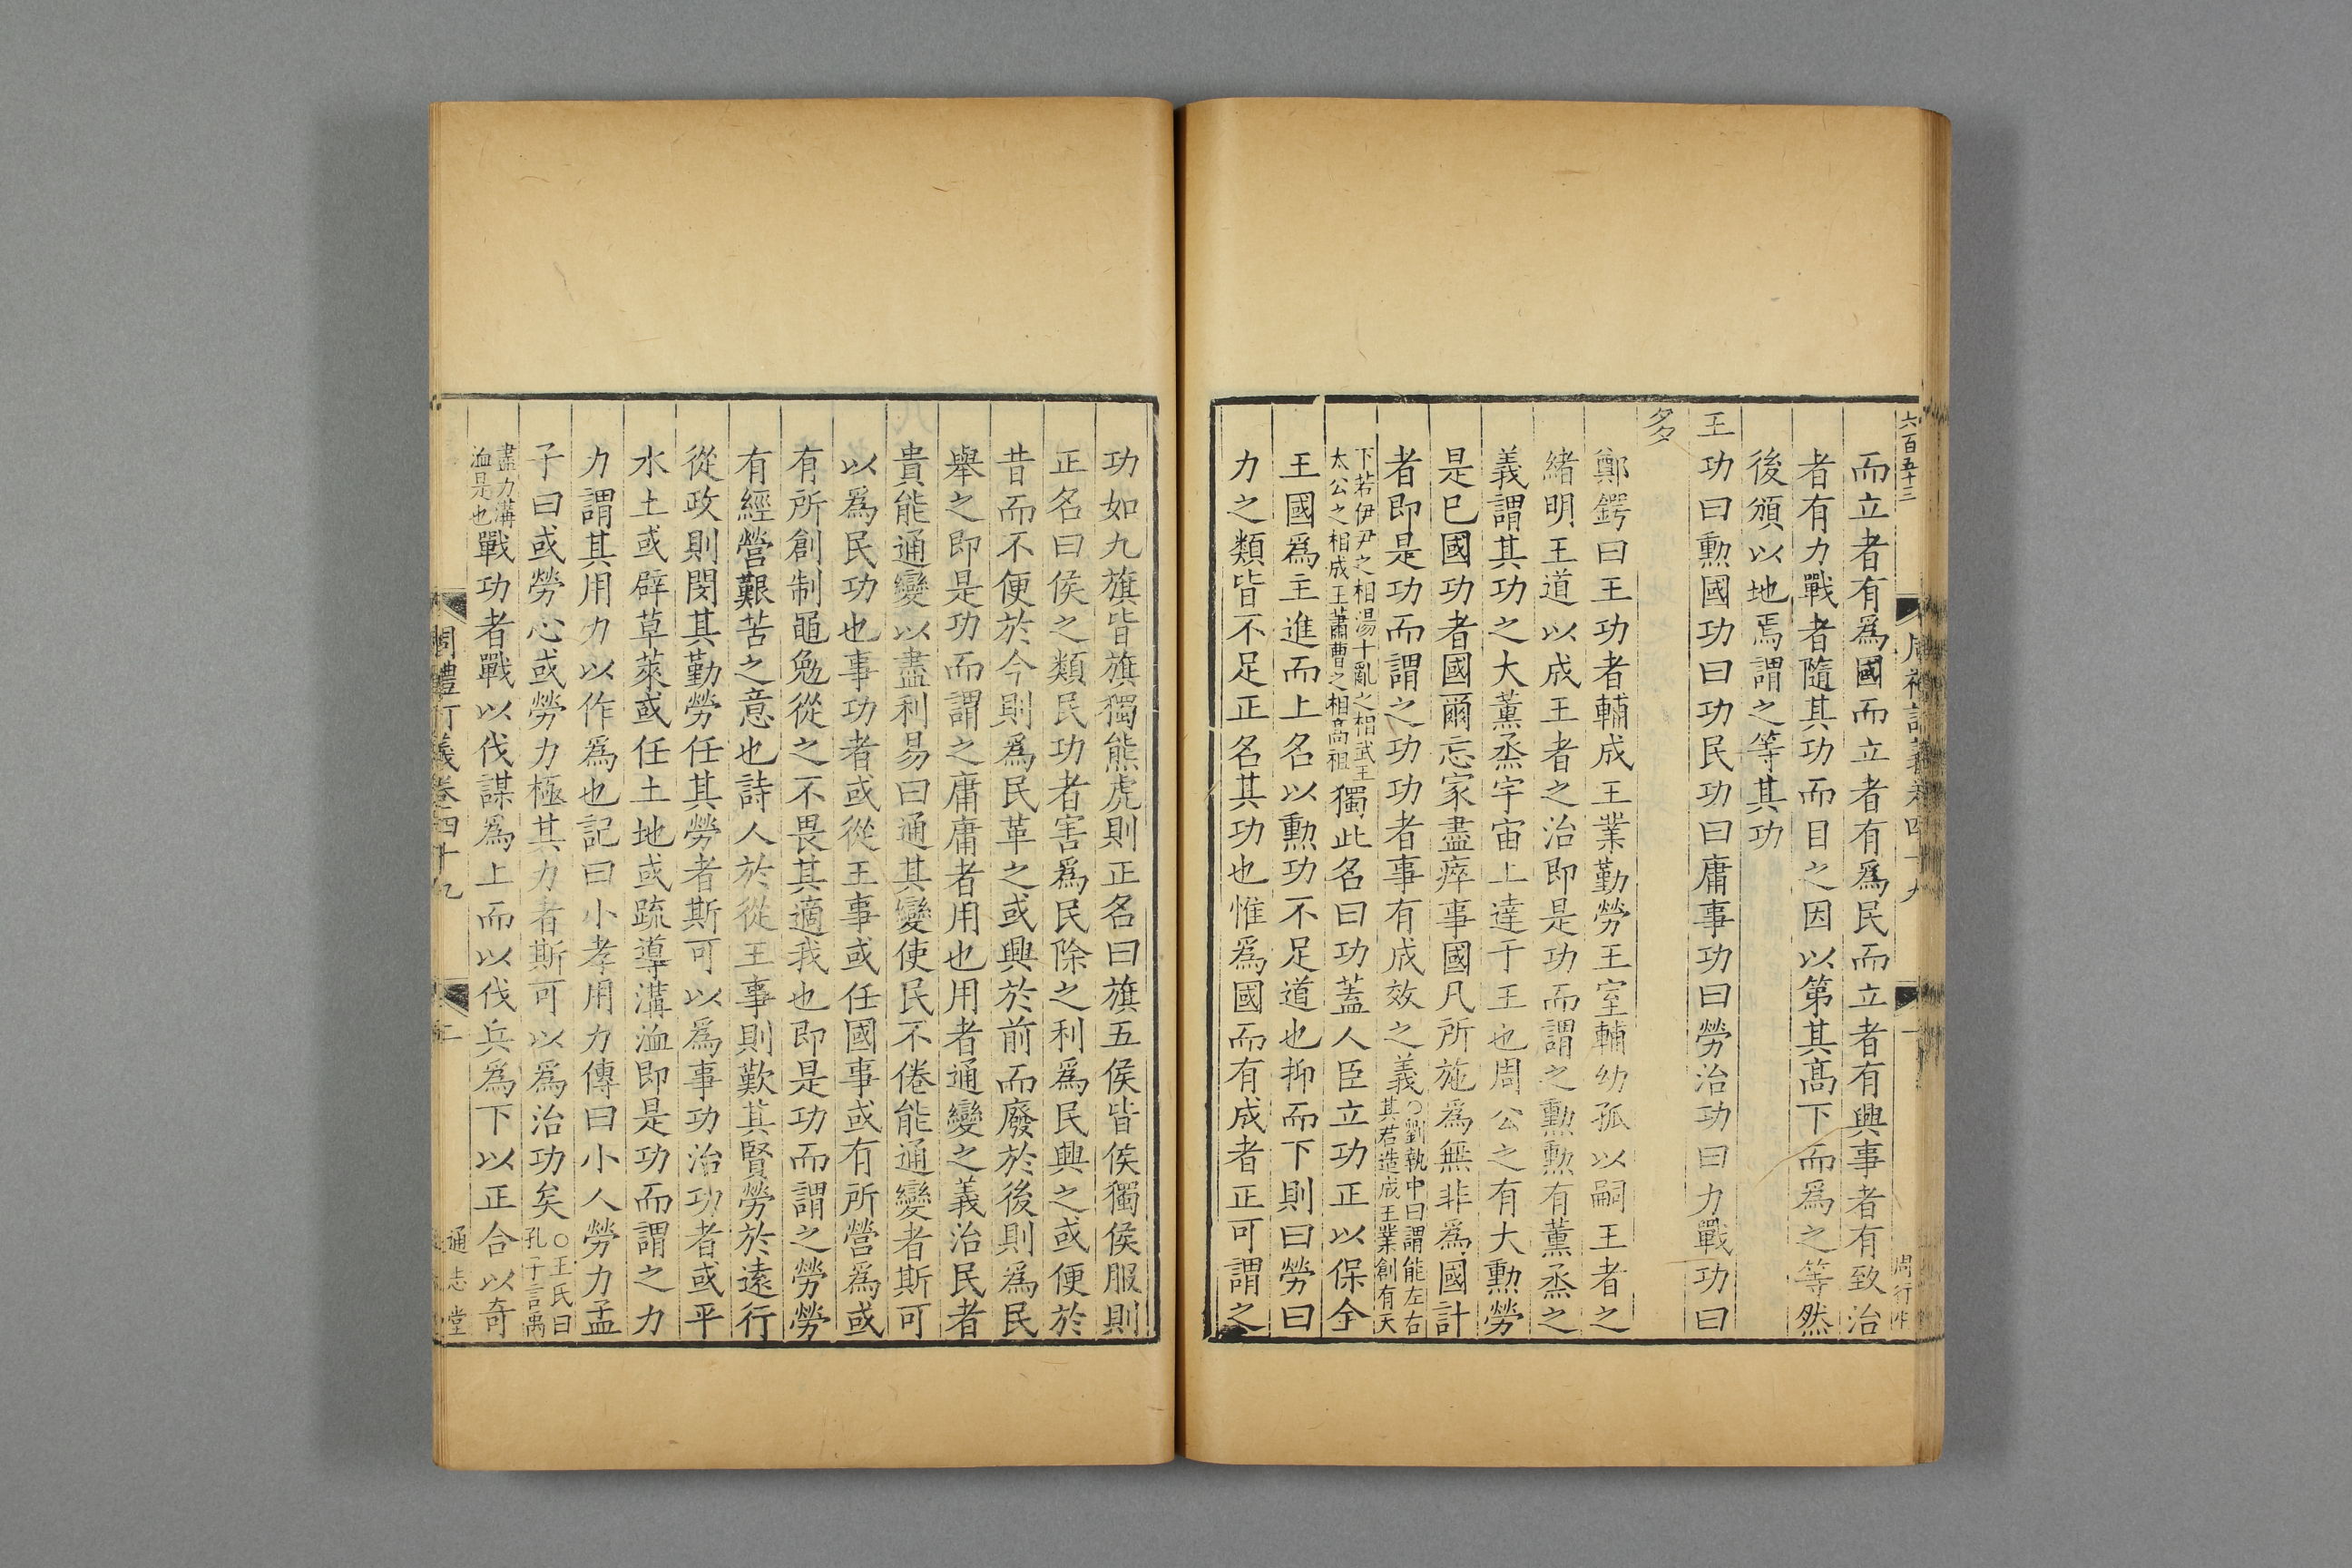 六百五十三
而立者有爲國而立者有爲民而立者有興事者有致治
者有力戰者隨其功而目之因以第其髙下而爲之等然
後頒以地焉謂之等其功
王功曰勲國功曰功民功曰庸事功曰勞治功曰力戰功曰
多
鄭鍔曰王功者輔成王業勤勞王室輔幼孤以嗣王者之
緒明王道以成王者之治即是功而謂之勲勲有薰烝之
義謂其功之大薫烝宇宙上達于王也周公之有大勲勞
是巳國功者國爾忘家盡瘁事國凡所施爲無非爲國計
者即是功而謂之功功者事有成效之義○劉執中曰謂能左右其君造成王業創有天
下若伊尹之相湯十亂之相武王太公之相成王蕭曹之相髙祖獨此名曰功蓋人臣立功正以保全
王國爲主進而上名以勲功不足道也抑而下則曰勞曰
力之類皆不足正名其功也惟爲國而有成者正可謂之
功如九旗皆旗獨熊虎則正名曰旗五侯皆侯獨侯服則
正名曰侯之類民功者害爲民除之利爲民興之或便於
昔而不便於今則爲民革之或興於前而廢於後則爲民
舉之即是功而謂之庸庸者用也用者通變之義治民者
貴能通變以盡利易曰通其變使民不倦能通變者斯可
以爲民功也事功者或從王事或任國事或有所營爲或
有所創制黽勉從之不畏其適我也即是功而謂之勞勞
有經營艱苦之意也詩人於從王事則歎其賢勞於遠行
從政則閔其勤勞任其勞者斯可以爲事功治功者或平
水土或辟草萊或任土地或疏導溝洫即是功而謂之力
力謂其用力以作爲也記曰小孝用力傳曰小人勞力孟
子曰或勞心或勞力極其力者斯可以爲治功矣○王氏曰孔子言禹
盡力溝洫是也戰功者戰以伐謀爲上而以伐兵爲下以正合以奇
周禮訂義卷四十九
二
通志堂